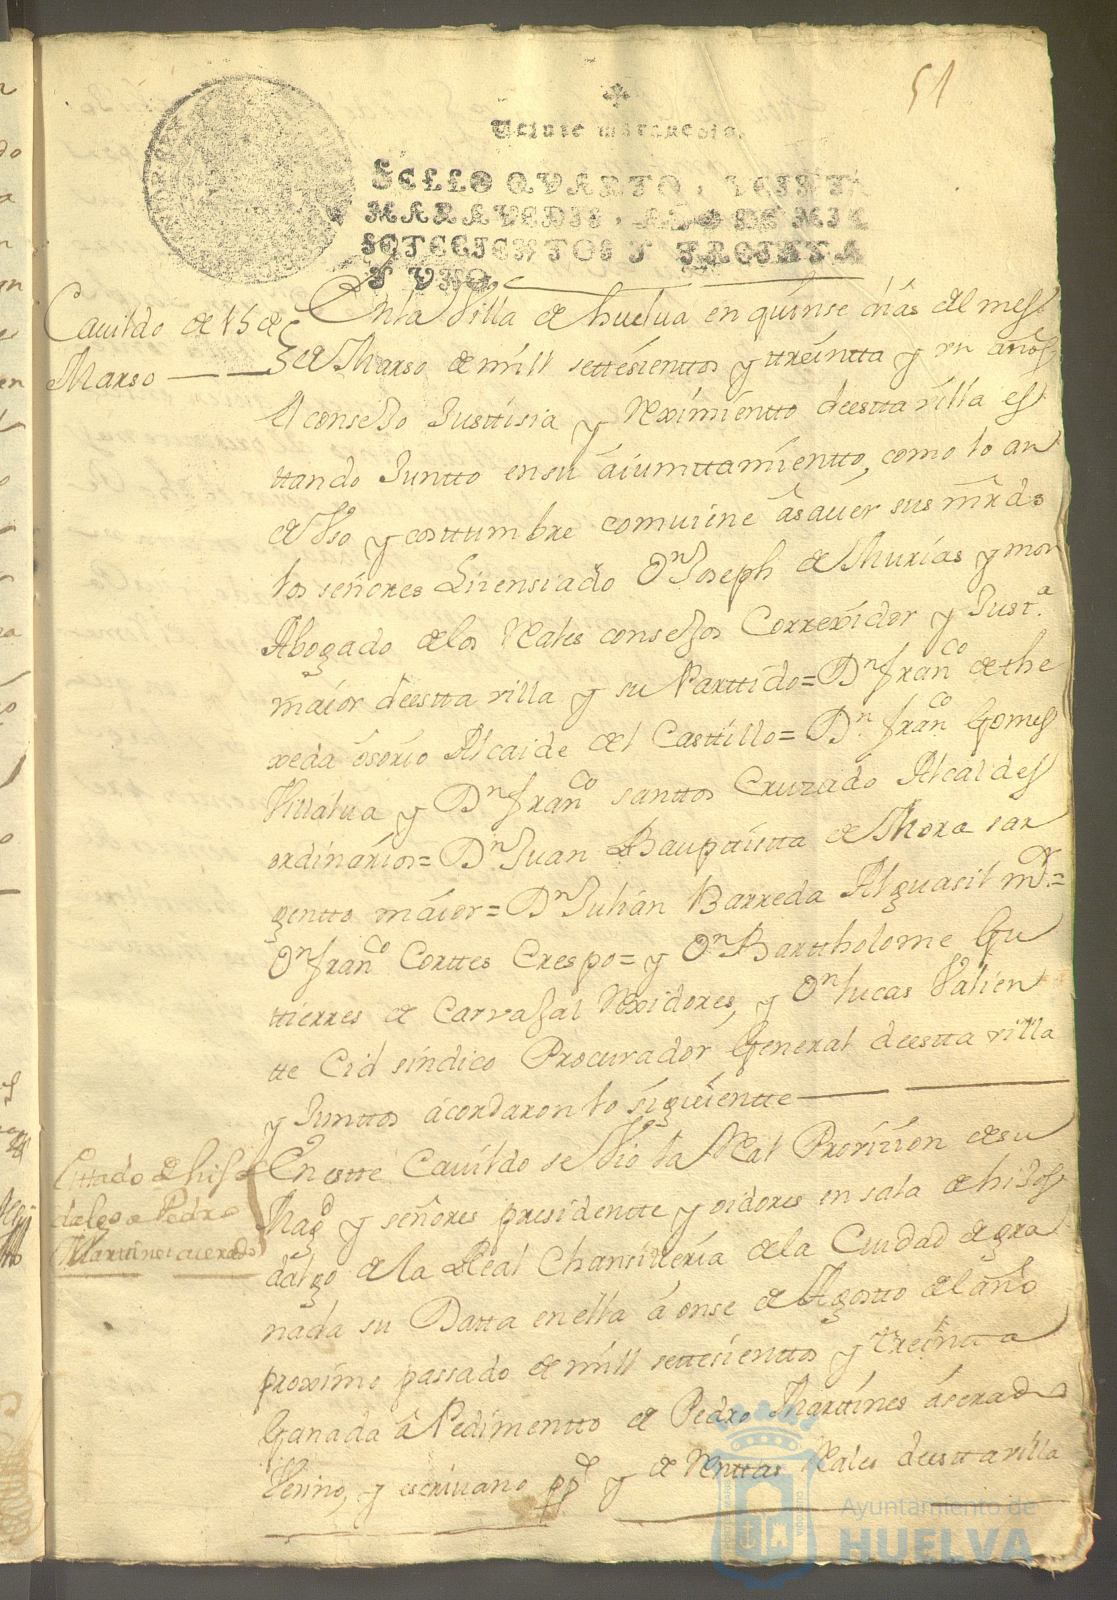 51
Veinte maravedis.
SELLO QVARTO, VEINTE
MARAVEDIS, AÑO DE MIL
SETECIENTOS Y TREINTA
Y VNO.
Cauildo de 15 de
Marso
En la Villa de huelua en quinse dias del mes
de Marso de mill settesienttos y ttreintta y un años
el consejo Justtisia y Reximientto deestta villa es
ttando Juntto en su aiunttamientto, como lo an
de Vso y costtumbre comuiene âsauer sus mrds
los señores Lisensiado Dn Joseph de Murias y mon
Abogado de los Reales consejos Correxidor y Justa
maior deestta villa y su Parttido= Dn Franco de the
xeda osorio Alcaide del Casttillo= Dn Franco Gomes
Villalua y Dn Franco santtos Cruzado Alcaldes
ordinarios= Dn Juan Bauptistta de Mora sar
gentto maior= Dn Julian Barreda Alguasil mr=
Dn Franco Corttes Crespo= y Dn Barttholome Gu
ttierres de Carvajal Rexidores, y Dn lucas Valien
tte Cid sindico Procurador General deestta villa
y Junttos acordaron lo siguientte
Esttado de hijo
dalgo a Pedro
Martines aserado
En estte Cauildo se Vio la Real Provision de su
Magd y señores presidentte y oidores en sala de hijos
dalgo de la Real Chansilleria de la Ciudad de gra
nada su Datta en ella á onse de Agostto del año
proximo passado de mill settesienttos y treintta
Ganada â Pedimentto de Pedro Marttines áserado
Vesino, y escriuano ppco y de Renttas Reales deestta villa
Ayuntamiento de
HUELVA